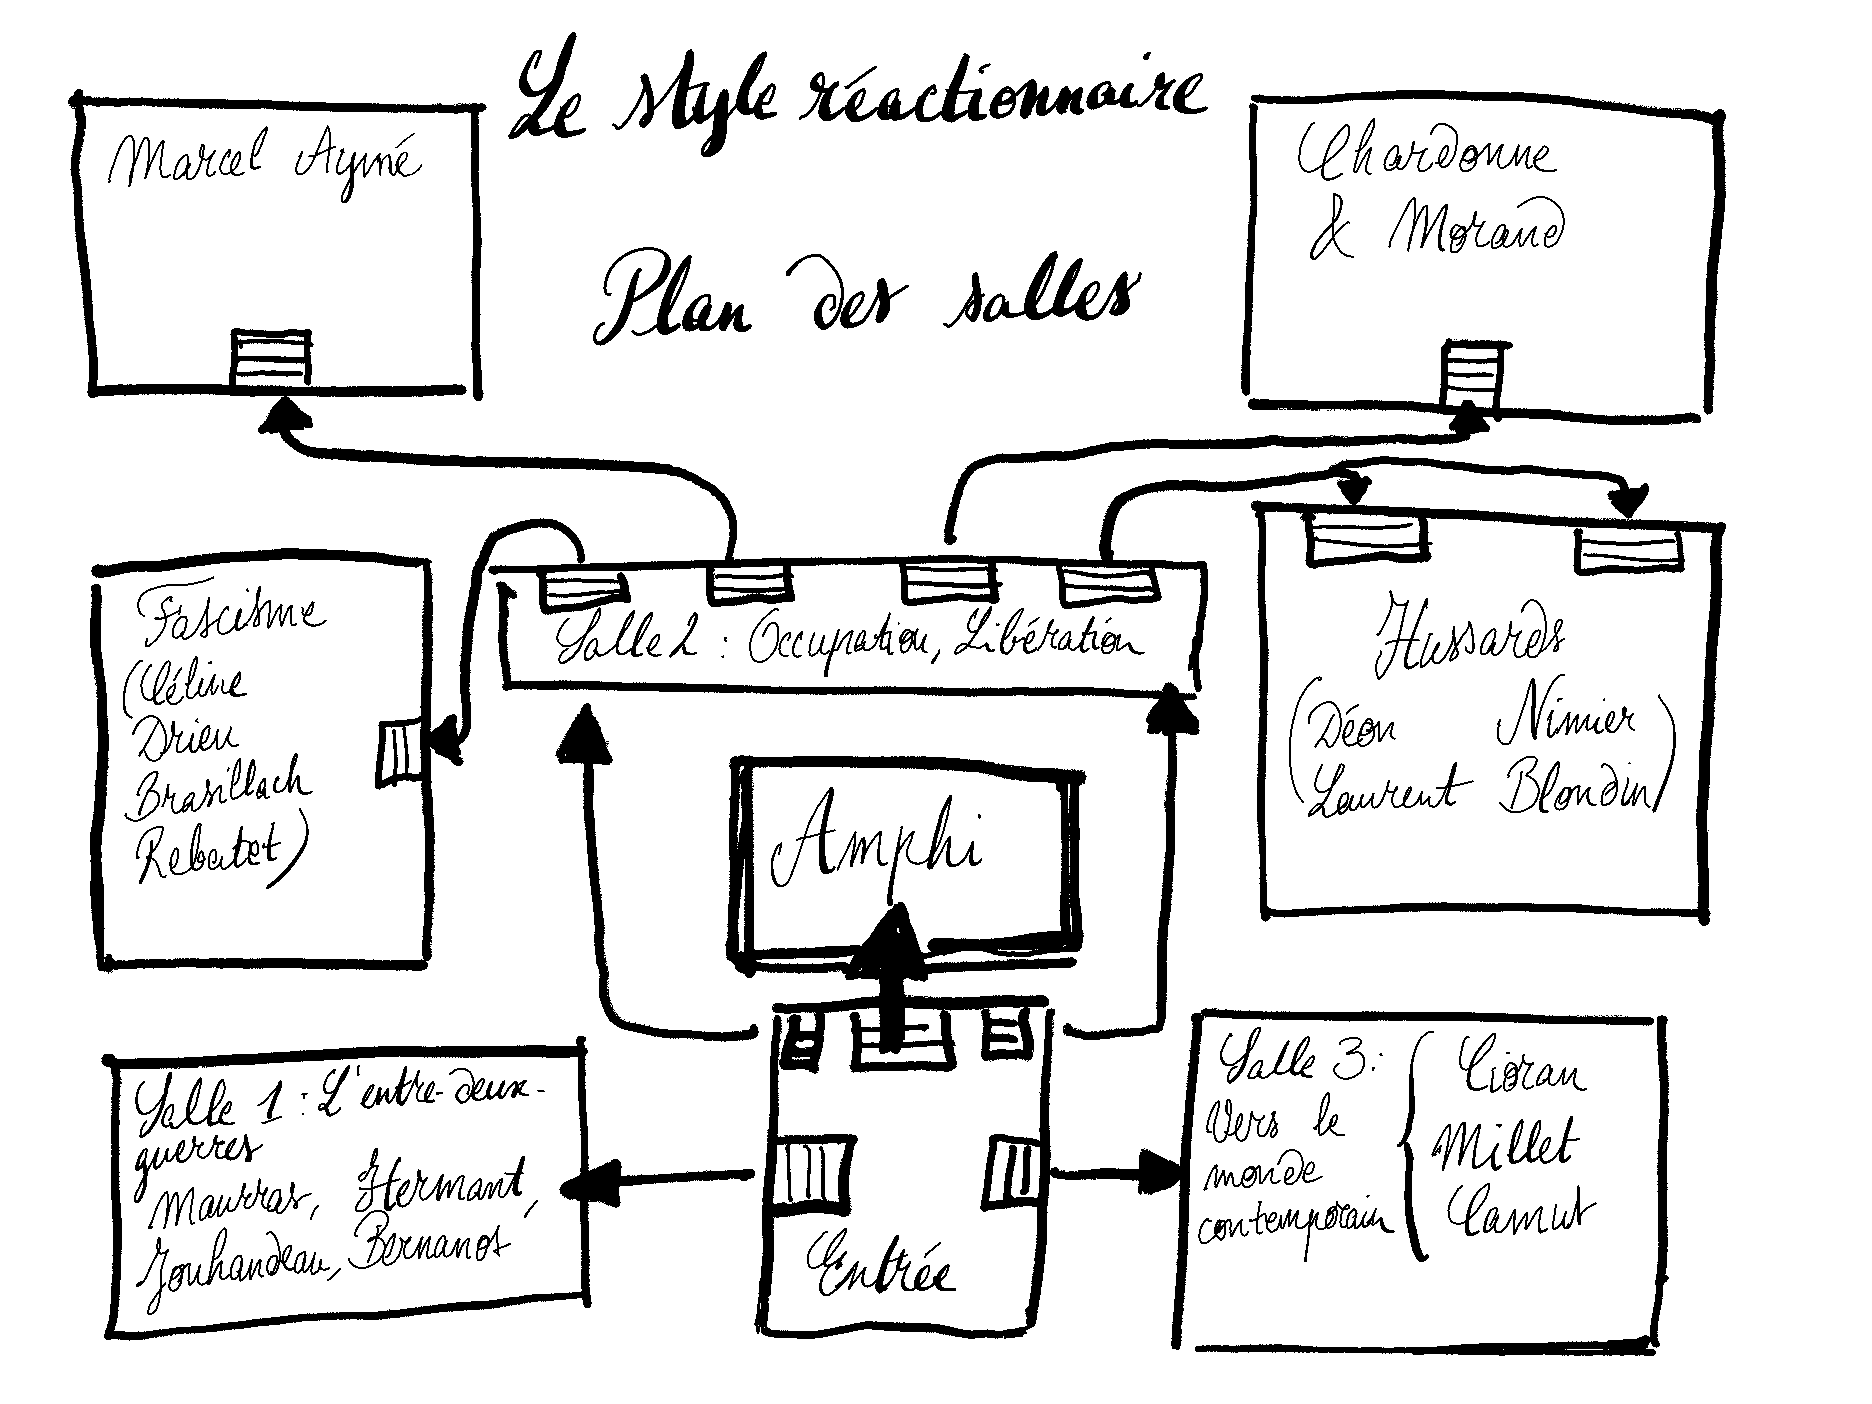 Le style réactionnaire
Plan des salles
Marcel Aymé
Chardonne
& Morand
Fascisme
(Céline
Drieu
Brasillach
Rebatet)
Salle 2 : Occupation, Libération
Hussards
(Déon Nimier
Laurent Blondin)
Amphi
Salle 1 : L'entre-deux-
guerres
Maurras, Hermant,
Jouhandeau, Bernanos
Entrée
Salle 3 :
Vers le
monde
contemporain
Cioran
Millet
Camus